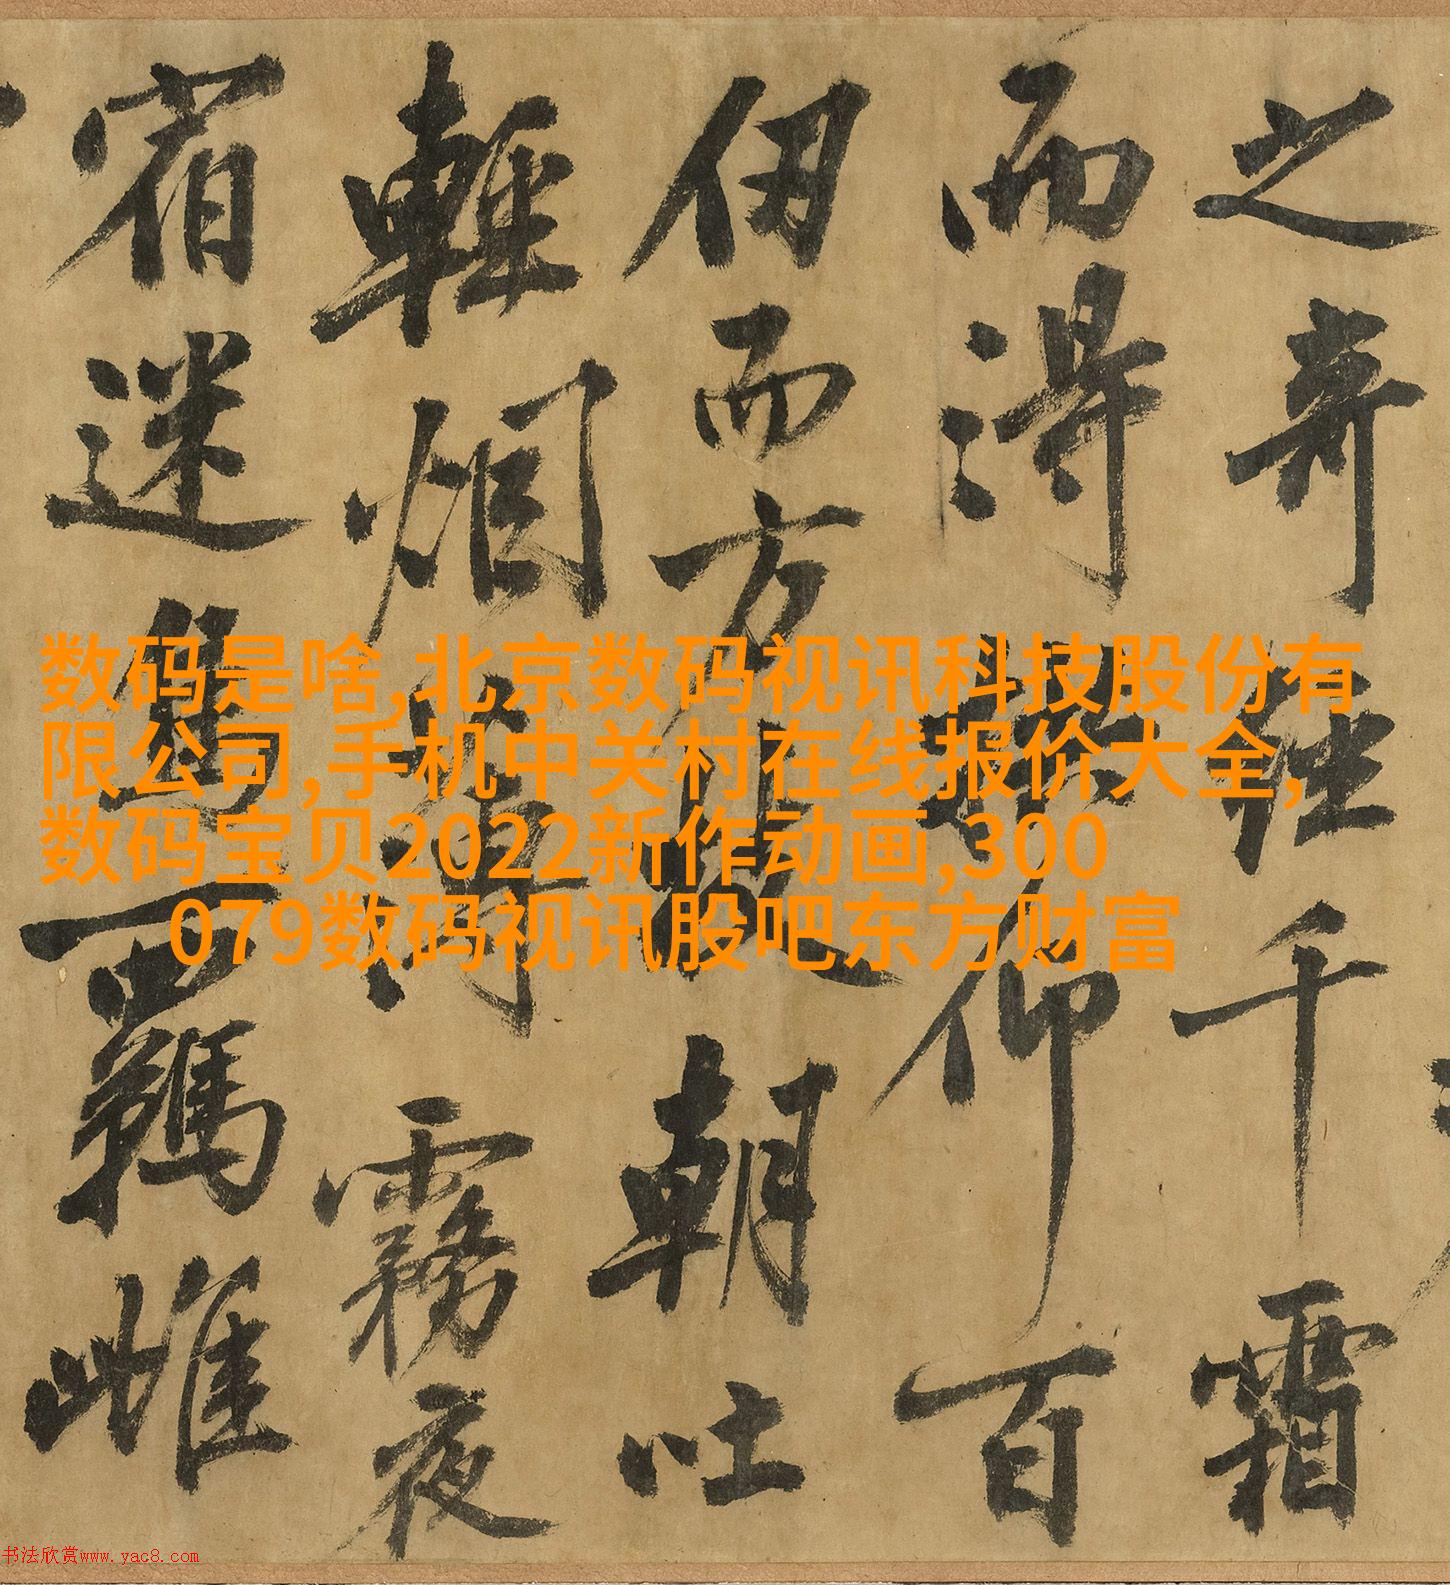 之奇挫千霜
而得仰百
仞而方朝吐
輕烟薄霧夜
宿迷鳥羈雌
数码是啥,北京数码视讯科技股份有
限公司,手机中关村在线报价大全,
数码宝贝2022新作动画,300
079数码视讯股吧东方财富
书法欣赏www.yac8.com